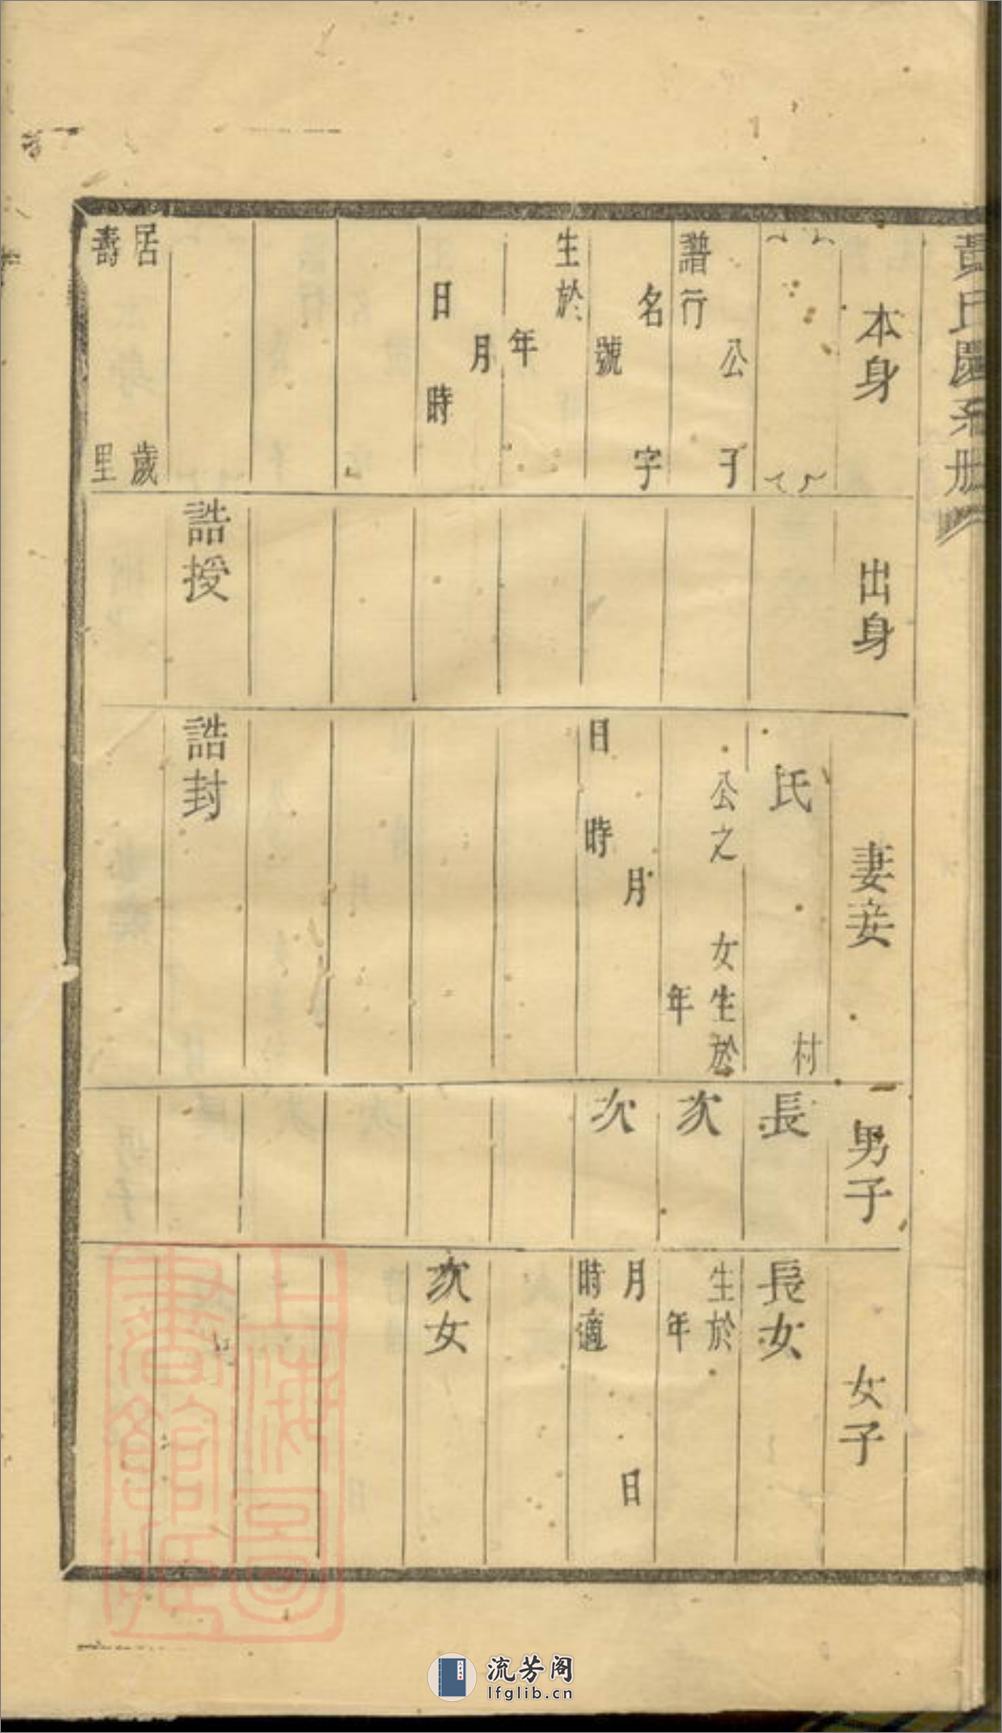 黃氏慶系冊
本身
公子
譜行
名字
號
生於
年
月
日時
居里
壽歲
出身
誥授
妻妾
氏村
公之女生於
年
月
日時
誥封
男子
長
次
次
女子
長女
生於
年
月日
時適
次女
上海圖書館藏
流芳阁
lfglib.cn